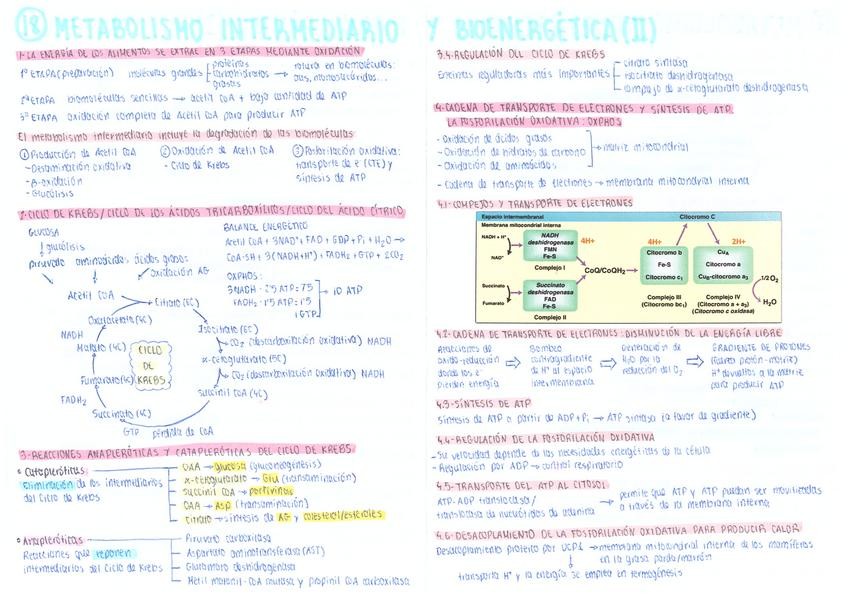 18 METABOLISMO INTERMEDIARIO Y BIOENERGÉTICA (II)
1-LA ENERGÍA DE LOS ALIMENTOS SE EXTRAE EN 3 ETAPAS MEDIANTE OXIDACIÓN
1ª ETAPA (preparación) moléculas grandes proteínas carbohidratos grasas → rotura en biomoléculas: aas, monosacáridos...
2ª ETAPA biomoléculas sencillas → acetil CoA + baja cantidad de ATP
3ª ETAPA oxidación completa de Acetil CoA para producir ATP
El metabolismo intermediario incluye la degradación de las biomoléculas
① Producción de Acetil CoA
- Desaminación oxidativa
- β-oxidación
- Glucólisis
② Oxidación de Acetil CoA
- Ciclo de Krebs
③ Fosforilación oxidativa:
transporte de e⁻ (CTE) y
síntesis de ATP
2-CICLO DE KREBS/CICLO DE LOS ÁCIDOS TRICARBOXÍLICOS/CICLO DEL ÁCIDO CÍTRICO
GLUCOSA
↓ glucólisis
piruvato aminoácidos ácidos grasos
oxidación AG
Acetil CoA
Citrato (6C)
Isocitrato (6C)
CO₂ (descarboxilación oxidativa) NADH
α-cetoglutarato (5C)
CO₂ (descarboxilación oxidativa) NADH
Succinil CoA (4C)
GTP pérdida de CoA
Succinato (4C)
FADH₂
Fumarato (4C)
Malato (4C)
NADH
Oxalacetato (4C)
CICLO
DE
KREBS
BALANCE ENERGÉTICO
Acetil CoA + 3NAD⁺ + FAD + GDP + Pi + H₂O →
CoA-SH + 3(NADH+H⁺) + FADH₂ + GTP + 2CO₂
OXPHOS:
3NADH · 2'5 ATP = 7'5
FADH₂ · 1'5 ATP = 1'5
1GTP
→ 10 ATP
3-REACCIONES ANAPLERÓTICAS Y CATAPLERÓTICAS DEL CICLO DE KREBS
• Catapleróticas
Eliminación de los intermediarios
del Ciclo de Krebs
OAA → glucosa (gluconeogénesis)
α-cetoglutarato → Glu (transaminación)
Succinil CoA → porfirinas
OAA → Asp (transaminación)
Citrato → síntesis de AG y colesterol/esteroles
• Anapleróticas
Reacciones que reponen
intermediarios del Ciclo de Krebs
Piruvato carboxilasa
Aspartato aminotransferasa (AST)
Glutamato deshidrogenasa
Metil malonil-CoA mutasa y propinil CoA carboxilasa
3.4-REGULACIÓN DEL CICLO DE KREBS
Enzimas reguladoras más importantes
citrato sintasa
isocitrato deshidrogenasa
complejo de α-cetoglutarato deshidrogenasa
4-CADENA DE TRANSPORTE DE ELECTRONES Y SÍNTESIS DE ATP.
LA FOSFORILACIÓN OXIDATIVA: OXPHOS
- Oxidación de ácidos grasos
- Oxidación de hidratos de carbono
- Oxidación de aminoácidos
→ matriz mitocondrial
- Cadena de transporte de electrones → membrana mitocondrial interna
4.1-COMPLEJOS Y TRANSPORTE DE ELECTRONES
Espacio intermembranal
Membrana mitocondrial interna
NADH + H⁺
NAD⁺
NADH
deshidrogenasa
FMN
Fe-S
Complejo I
4H+
Succinato
Fumarato
Succinato
deshidrogenasa
FAD
Fe-S
Complejo II
CoQ/CoQH₂
4H+
Citocromo b
Fe-S
Citocromo c₁
Complejo III
(Citocromo bc₁)
Citocromo C
2H+
CuA
Citocromo a
CuB-citocromo a₃
Complejo IV
(Citocromo a + a₃)
(Citocromo c oxidasa)
1/2 O₂
H₂O
4.2-CADENA DE TRANSPORTE DE ELECTRONES: DISMINUCIÓN DE LA ENERGÍA LIBRE
Reacciones de
óxido-reducción
donde los e⁻
pierden energía
⇒
Bombeo
contragradiente
de H⁺ al espacio
intermembrana
⇒
Generación de
H₂O por la
reducción del O₂
⇒
GRADIENTE DE PROTONES
(fuerza protón-motriz)
H⁺ devueltos a la matriz
para producir ATP
4.3-SÍNTESIS DE ATP
Síntesis de ATP a partir de ADP+Pi → ATP sintasa (a favor de gradiente)
4.4-REGULACIÓN DE LA FOSFORILACIÓN OXIDATIVA
- Su velocidad depende de las necesidades energéticas de la célula
- Regulación por ADP → control respiratorio
4.5-TRANSPORTE DEL ATP AL CITOSOL
ATP-ADP translocasa/
translocasa de nucleótidos de adenina
→ permite que ATP y ATP puedan ser movilizadas
a través de la membrana interna
4.6-DESACOPLAMIENTO DE LA FOSFORILACIÓN OXIDATIVA PARA PRODUCIR CALOR
Desacoplamiento proteico por UCP1 → membrana mitocondrial interna de los mamíferos
en la grasa parda/marrón
↓
transporta H⁺ y la energía se emplea en termogénesis